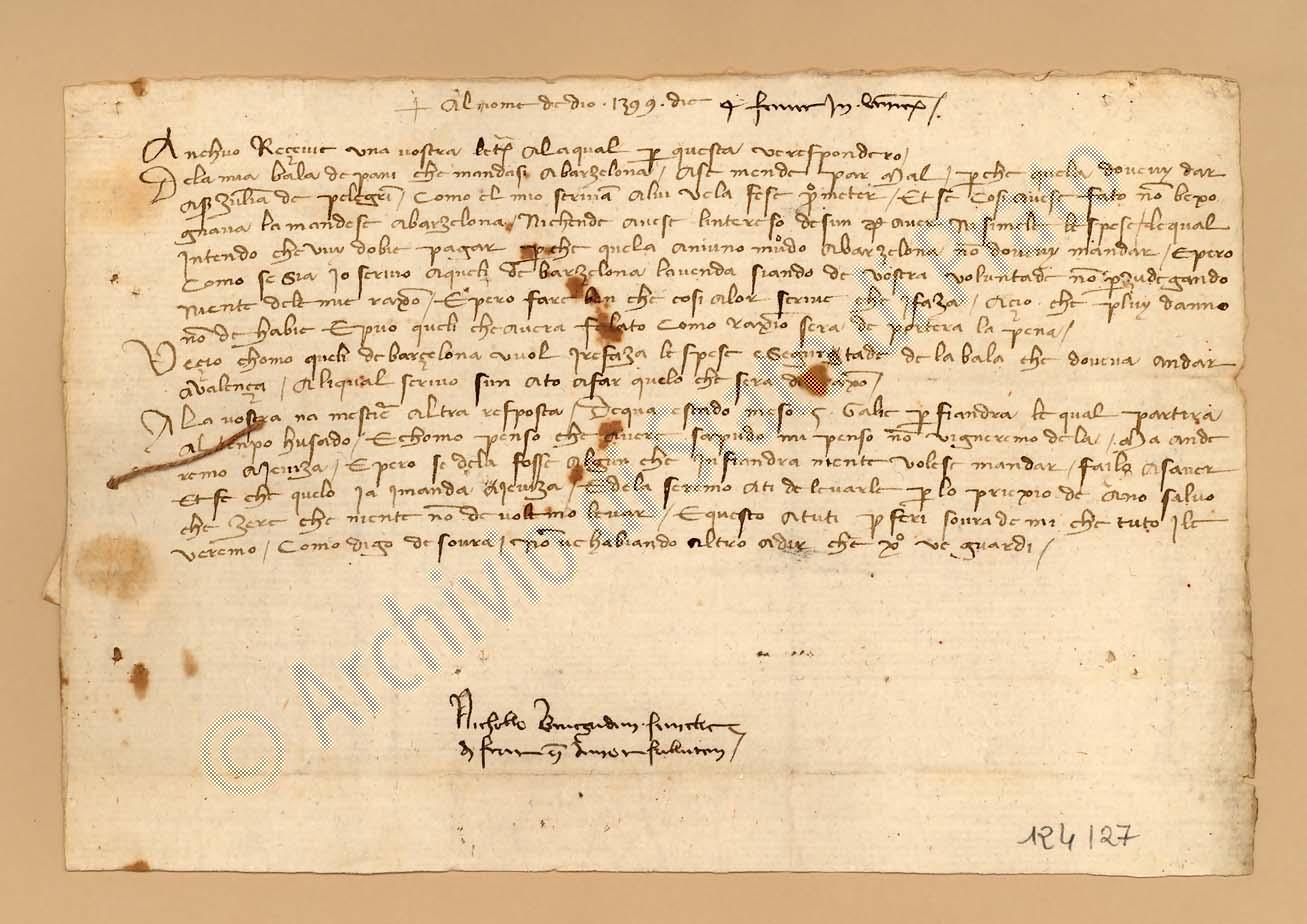 + Al nome de dio · 1399 · die 4
Anchuo Reçevie una vostra letra Ala qual per questa ve respondero /
Dela mia bala de pani che mandasi A barzelona / Asè mende par Mal / perche quela dovevy dar
A zulian de pelegrin / Como el mio scrivan A lui vela fese prometer / Et se Cosi Avese fato non bexo
gnava la mandese A barzelona / Nichende Avese linterese desun Per Aver Ni simele le spese / lequal
Intendo che vuy dobie pagar perche quela A niuno mudo A barzelona non dovevy mandar / E pero
Como se sia Io scrivo A queli de barzelona la venda siando de vostra voluntade non
niente dele mie raxon / E pero fare ben che cosi Alor scrive che I faza / Açio che pluy danno
non de habie E puo queli che Avera falato Como raxion sera de portera la pena /
Veçio chomo queli de barçelona vuol I refaza le spese e segurtade de la bala che doveva Andar
A valença / Ali qual scrivo sun Ato A far quelo che sera de raxon /
A La vostra na mestier Altra resposta / De qua esendo meso 5 Galie per fiandra le qual partera
Al tenpo husado / E chomo penso che Avere sapudo mi penso non vigneremo de la / Ma Ande
remo A Jeniza / E pero se dela fosse Algun che In fiandra niente volese mandar / faile A saver
Et se che quelo Ia I manda A Jeniza / E dela seremo Ati de levarle per lo priexio de Ano salvo
che zere che niente non de volemo levar / E questo A tuti proferi soura de mi che tuto I le
veremo / Como digo de soura / Non ve habiando Altro A dir che xpo ve guardi /
Nicholo
salutem
124/27
© Archivio di Stato di Prato